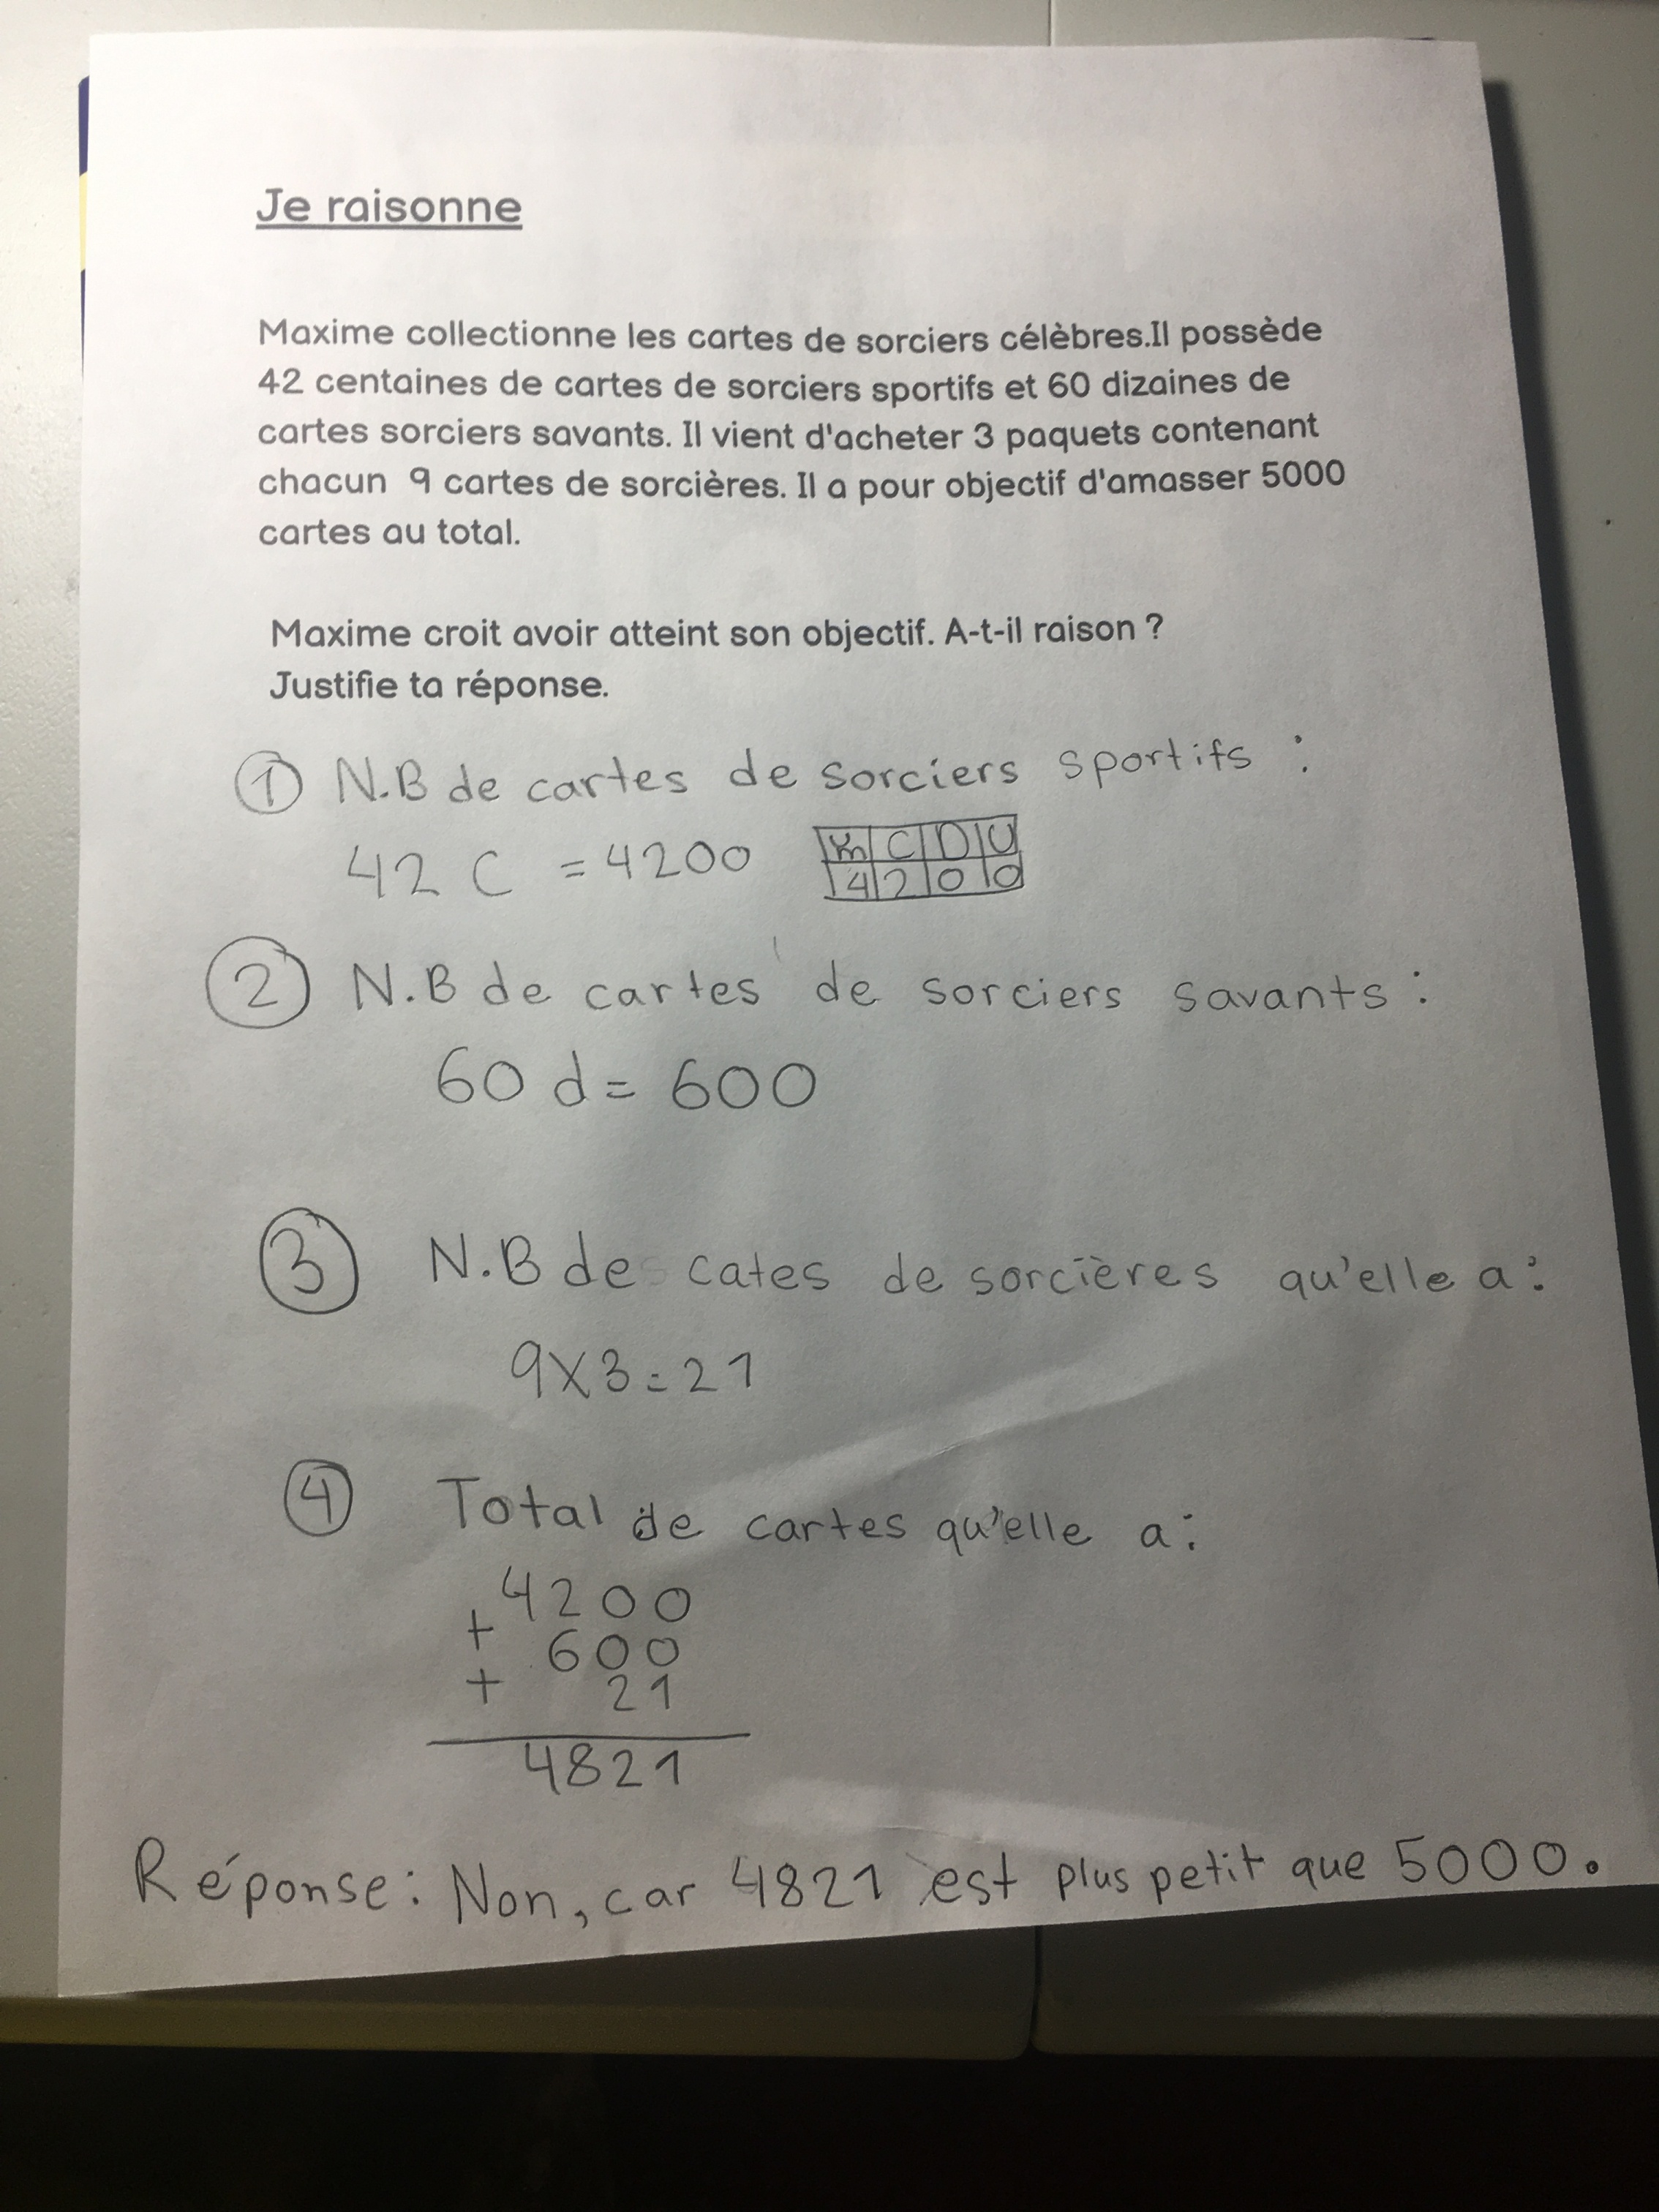 Je raisonne
Maxime collectionne les cartes de sorciers célèbres.Il possède
42 centaines de cartes de sorciers sportifs et 60 dizaines de
cartes sorciers savants. Il vient d'acheter 3 paquets contenant
chacun 9 cartes de sorcières. Il a pour objectif d'amasser 5000
cartes au total.
Maxime croit avoir atteint son objectif. A-t-il raison ?
Justifie ta réponse.
1 N.B de cartes de sorciers sportifs :
42 C = 4200
m C D U
4 2 0 0
2 N.B de cartes de sorciers savants :
60 d = 600
3 N.B de cates de sorcières qu'elle a :
9 X 3 = 21
4 Total de cartes qu'elle a :
4200
+ 600
+ 21
4821
Réponse : Non, car 4821 est plus petit que 5000.